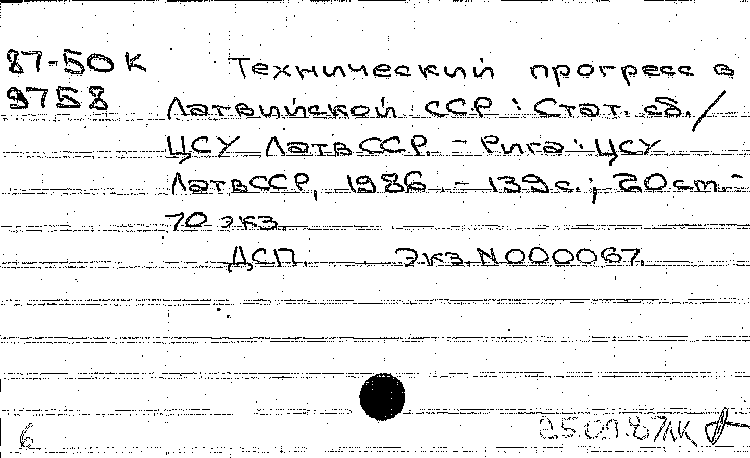 87-50К Технический прогресс в
9758 Латвийской ССР : Стат. сб. /
ЦСУ ЛатвССР. - Рига : ЦСУ
ЛатвССР, 1986. - 139с.; 20cm. -
70 экз.
ДСП. Экз. N000067.
6 25.01.87ЛК